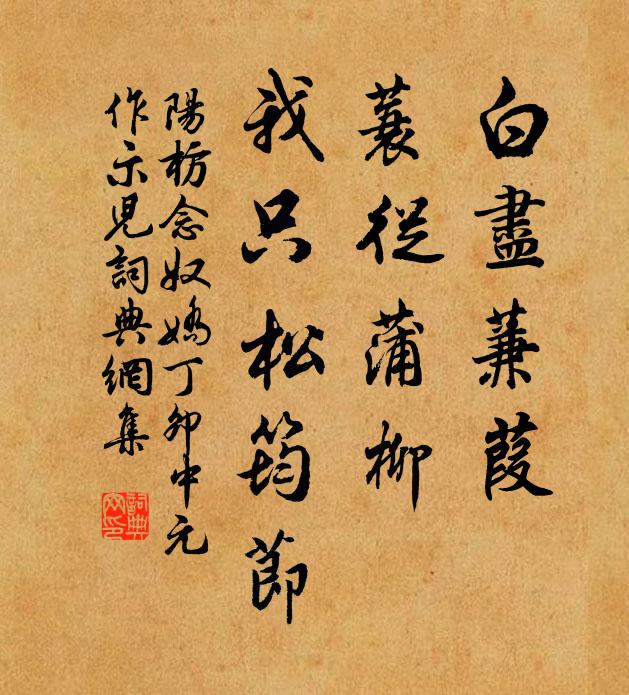 白盡蒹葭
蓑從蒲柳
我只松筠節
陽枋念奴嬌丁卯中元
作示兒詞典網集
詞典
网印